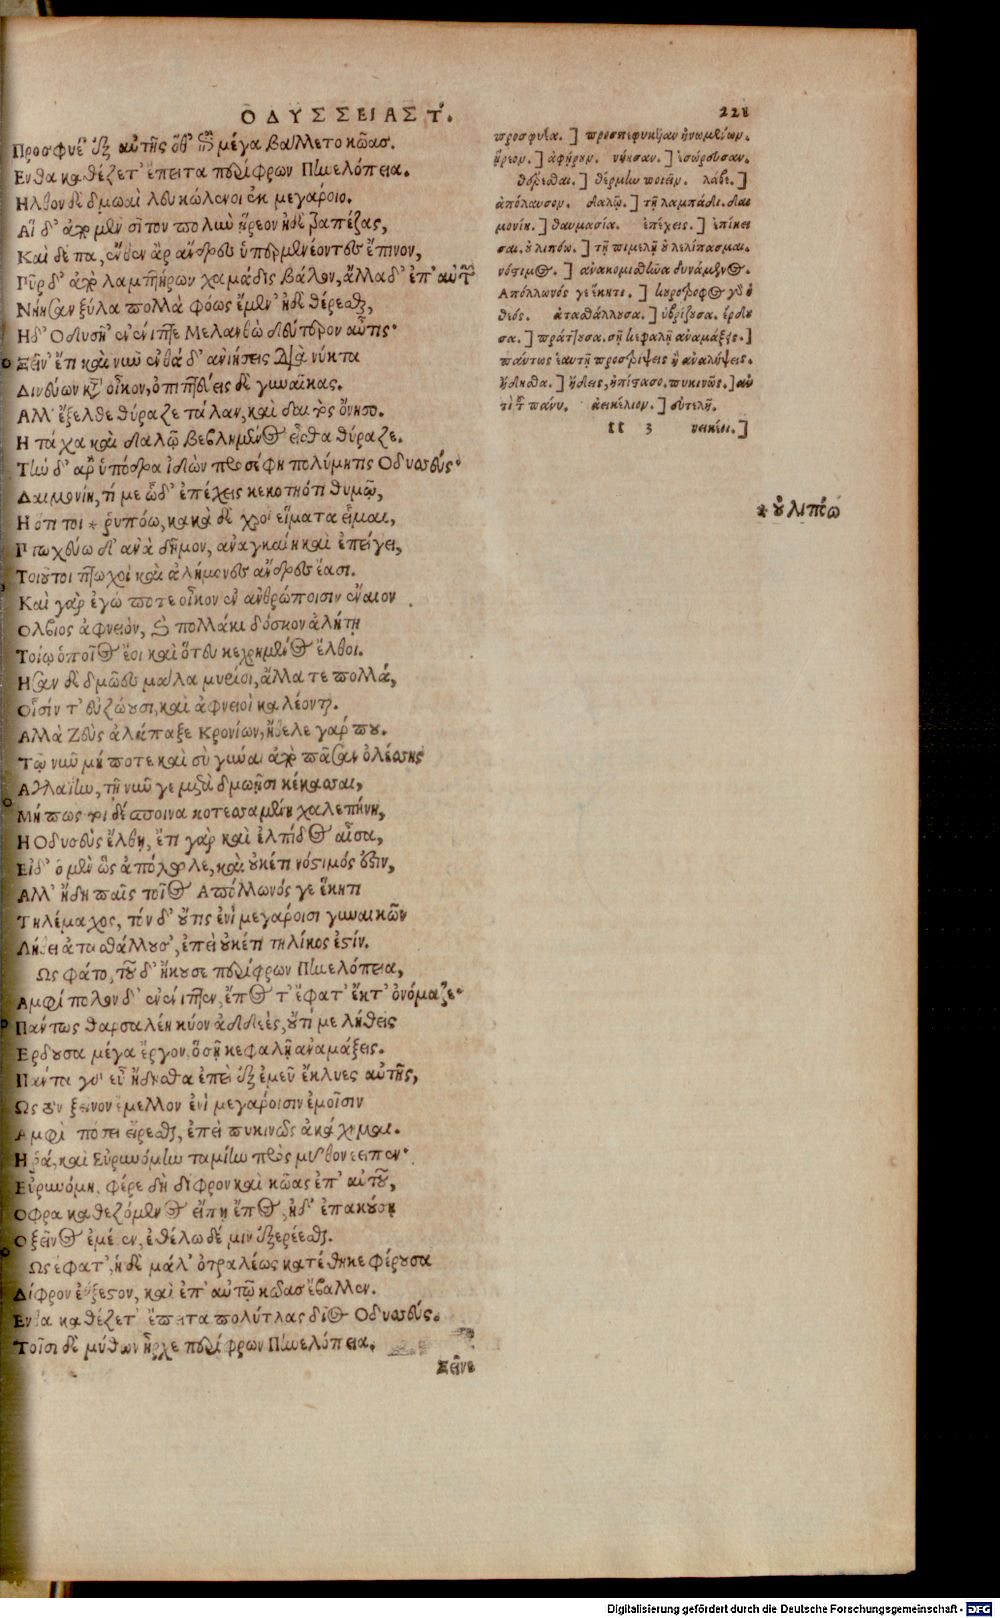 ΟΔΥΣΣΕΙΑΣ Τ.
221
Προσφυέ' ἐξ αὐτῆς ὅθ' ἐπὶ μέγα βάλλετο κῶας.
Ενθα καθέζετ' ἔπειτα περίφρων Πηνελόπεια.
Ηλθον δὲ δμωαὶ λευκώλενοι ἐκ μεγάροιο.
Αἵ δ' ἀπὸ μὲν σῖτον πολιὺ ᾕρεον ἠδὲ τραπέζας,
Καὶ δέπα, ἔνθεν ἄρ ἄνδρες ὑπερμενέοντες ἔπινον,
Πῦρ δ' ἀπὸ λαμπτήρων χαμάδις βάλον, ἄλλα δ' ἐπ' αὐτῶν
Νήησαν ξύλα πολλὰ φόως ἔμεν' ἠδὲ θέρεσθαι,
Ηδ' Οδυσῆ' ἐνένιπτε Μελανθὼ δεύτερον αὖτις·
Ξεῖν' ἔτι καὶ νιῦ ἐνθάδ' ἀνιήσεις διὰ νύκτα
Δινεύων κατ' οἶκον, ὀπιπτεύεις δὲ γυναῖκας.
Αλλ' ἔξελθε θύραζε τάλαν, καὶ δαιτὸς ὄνησο.
Η τάχα καὶ δαλῷ βεβλημένος εἶσθα θύραζε.
Τὴν δ' ἄρ' ὑπόδρα ἰδὼν προσέφη πολύμητις Οδυσσεύς·
Δαιμονίη, τί με ὧδ' ἐπέχεις κεκοτηότι θυμῷ,
Η ὅτι τοι * ῥυπόω, κακὰ δὲ χροῒ εἵματα εἷμαι,
Πτωχεύω δ' ἀνὰ δῆμον, ἀναγκαίη καὶ ἐπείγει,
Τοιοῦτοι πτωχοὶ καὶ ἀλήμονες ἄνδρες ἔασι.
Καὶ γὰρ ἐγώ ποτε οἶκον ἐν ἀνθρώποισιν ἔναιον
Ολβιος ἀφνειὸν, καὶ πολλάκι δόσκον ἀλήτῃ
Τοίῳ ὁποῖος ἔοι καὶ ὅτευ κεχρημένος ἔλθοι.
Ησαν δὲ δμῶες μάλα μυρίοι, ἄλλα τε πολλὰ,
Οἷσίν τ' εὖ ζώουσι, καὶ ἀφνειοὶ καλέονται.
Αλλὰ Ζεὺς ἀλάπαξε Κρονίων, ἤθελε γάρ που.
Τῷ νιῦ μή ποτε καὶ σὺ γύναι ἀπὸ πᾶσαν ὀλέσῃς
Αγλαΐην, τῇ νιῦ γε μετὰ δμωῇσι κέκασαι,
Μή πως τοι δέσποινα κοτεσσαμένη χαλεπήνῃ,
Η Οδυσεὺς ἔλθῃ, ἔτι γὰρ καὶ ἐλπίδος αἶσα,
Εἰ δ' ὁ μὲν ὣς ἀπόλωλε, καὶ οὐκέτι νόστιμός ἐστιν,
Αλλ' ἤδη παῖς τοῖος Απόλλωνός γε ἕκητι
Τηλέμαχος, τὸν δ' οὔτις ἐνὶ μεγάροισι γυναικῶν
Λήθει ἀτασθάλλουσ', ἐπεὶ οὐκέτι τηλίκος ἐστίν.
Ως φάτο, τοῦ δ' ἤκουσε περίφρων Πηνελόπεια,
Αμφίπολον δ' ἐνένιπτεν, ἔπος τ' ἔφατ' ἔκ τ' ὀνόμαζε·
Πάντως θαρσαλέη κύον ἀδδεὲς, οὔτι με λήθεις
Ερδουσα μέγα ἔργον. ὃ σῇ κεφαλῇ ἀναμάξεις.
Πάντα γὰρ εὖ ᾔδησθα ἐπεὶ ἐξ ἐμεῦ ἔκλυες αὐτῆς,
Ως τὸν ξεῖνον ἔμελλον ἐνὶ μεγάροισιν ἐμοῖσιν
Αμφὶ πόσει εἴρεσθαι, ἐπεὶ πυκινῶς ἀκάχημαι.
Η ῥα, καὶ Εὐρυνόμην ταμίην πρὸς μῦθον ἔειπεν·
Εὐρυνόμη, φέρε δὴ δίφρον καὶ κῶας ἐπ' αὐτοῦ,
Οφρα καθεζόμενος εἴπῃ ἔπος, ἠδ' ἐπακούσῃ
Ο ξεῖνος ἐμέθεν, ἐθέλω δέ μιν ἐξερέεσθαι.
Ως ἔφατ', ἡ δὲ μάλ' ὀτραλέως κατέθηκε φέρουσα
Δίφρον ἐΰξεστον, καὶ ἐπ' αὐτῷ κῶας ἔβαλλεν.
Ενθα καθέζετ' ἔπειτα πολύτλας δῖος Οδυσσεύς.
Τοῖσι δὲ μύθων ἦρχε περίφρων Πηνελόπεια.
Ξεῖνε
προσφυέα.] προσπεφυκυῖαν ἡνωμένην.
ᾕρεον.] ἀφῄρουν. νήησαν.] ἐσώρευσαν.
θέρεσθαι.] θερμὴν ποιεῖν. λάβε.]
ἀπόλαυσον. δαλῷ.] τῇ λαμπάδι. δαι
μονίη.] θαυμασία. ἐπέχεις.] ἐπίκει
σαι. οὐ λιπόω.] τῇ πιμελῇ οὐ λελίπασμαι.
νόστιμος.] ἀνακομισθῆναι δυνάμενος.
Απόλλωνός γε ἕκητι.] κουροτρόφος γὰρ ὁ
θεός. ἀτασθάλλουσα.] ὑβρίζουσα. ἔρδου
σα.] πράττουσα. σῇ κεφαλῇ ἀναμάξεις.]
πάντως ἑαυτῇ προστρίψεις ἢ ἀναλήψεις.
ᾔδησθα.] ᾔδεις, ἠπίστασο. πυκινῶς.] ἀν
τὶ τοῦ πάνυ. ἀεικέλιον.] εὐτελῆ.
ττ 3 νεικέοι.]
* οὐ λιπόω
Digitalisierung gefördert durch die Deutsche Forschungsgemeinschaft - DFG